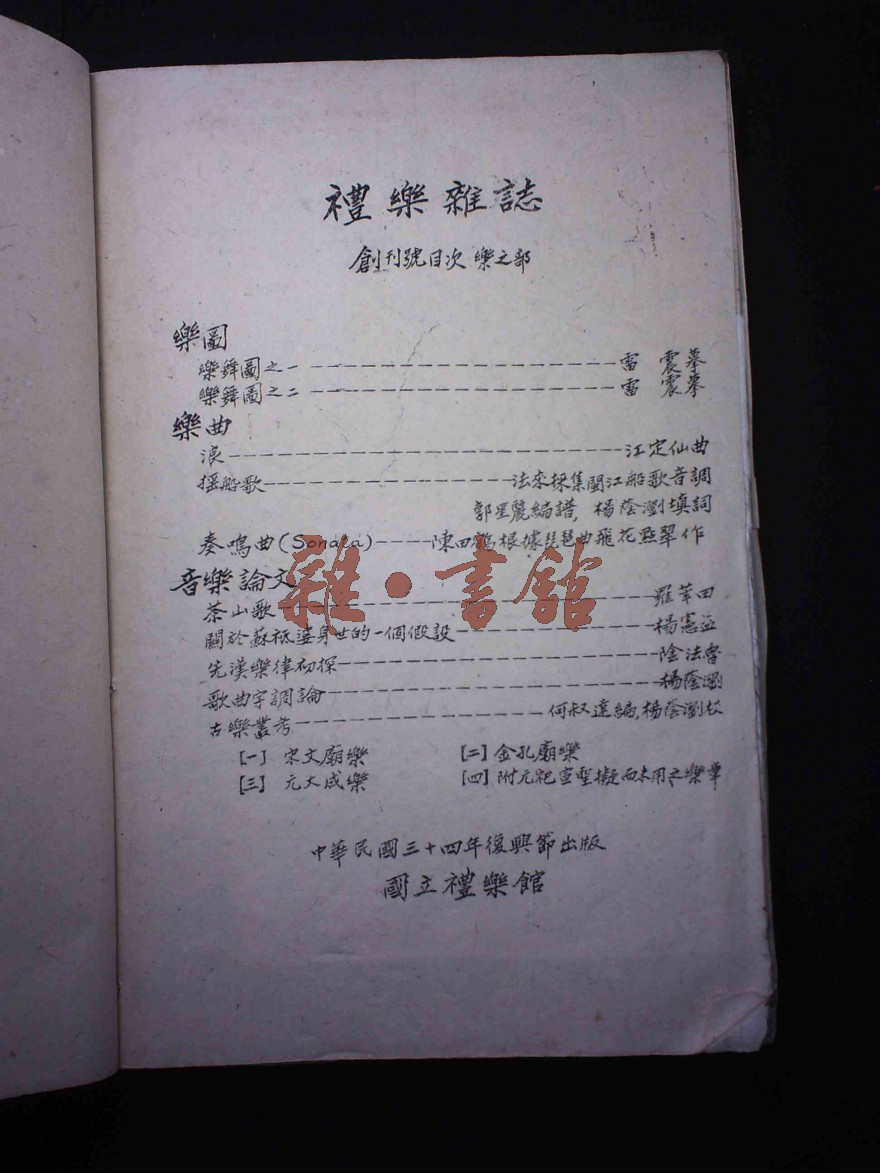 禮樂雜誌
創刊號目次 樂之部
樂圖
樂舞圖之一------------------雷 震摹
樂舞圖之二------------------雷 震摹
樂曲
浪------------------------江定仙曲
搖船歌----------------法來採集閩江船歌音調
郭星麗編譜，楊蔭瀏填詞
奏鳴曲(Sonata)----陳田鶴根據琵琶曲飛花點翠作
音樂論文
茶山歌----------------------羅莘田
關於蘇祗婆身世的一個假設------------楊憲益
先漢樂律初探--------------------陰法魯
歌曲字調論---------------------楊蔭瀏
古樂叢考----------------何叔達編，楊蔭瀏校
[一] 宋文廟樂 [二] 金孔廟樂
[三] 元大成樂 [四] 附元祀宣聖擬而未用之樂章
中華民國三十四年復興節出版
國立禮樂館
雜·書館